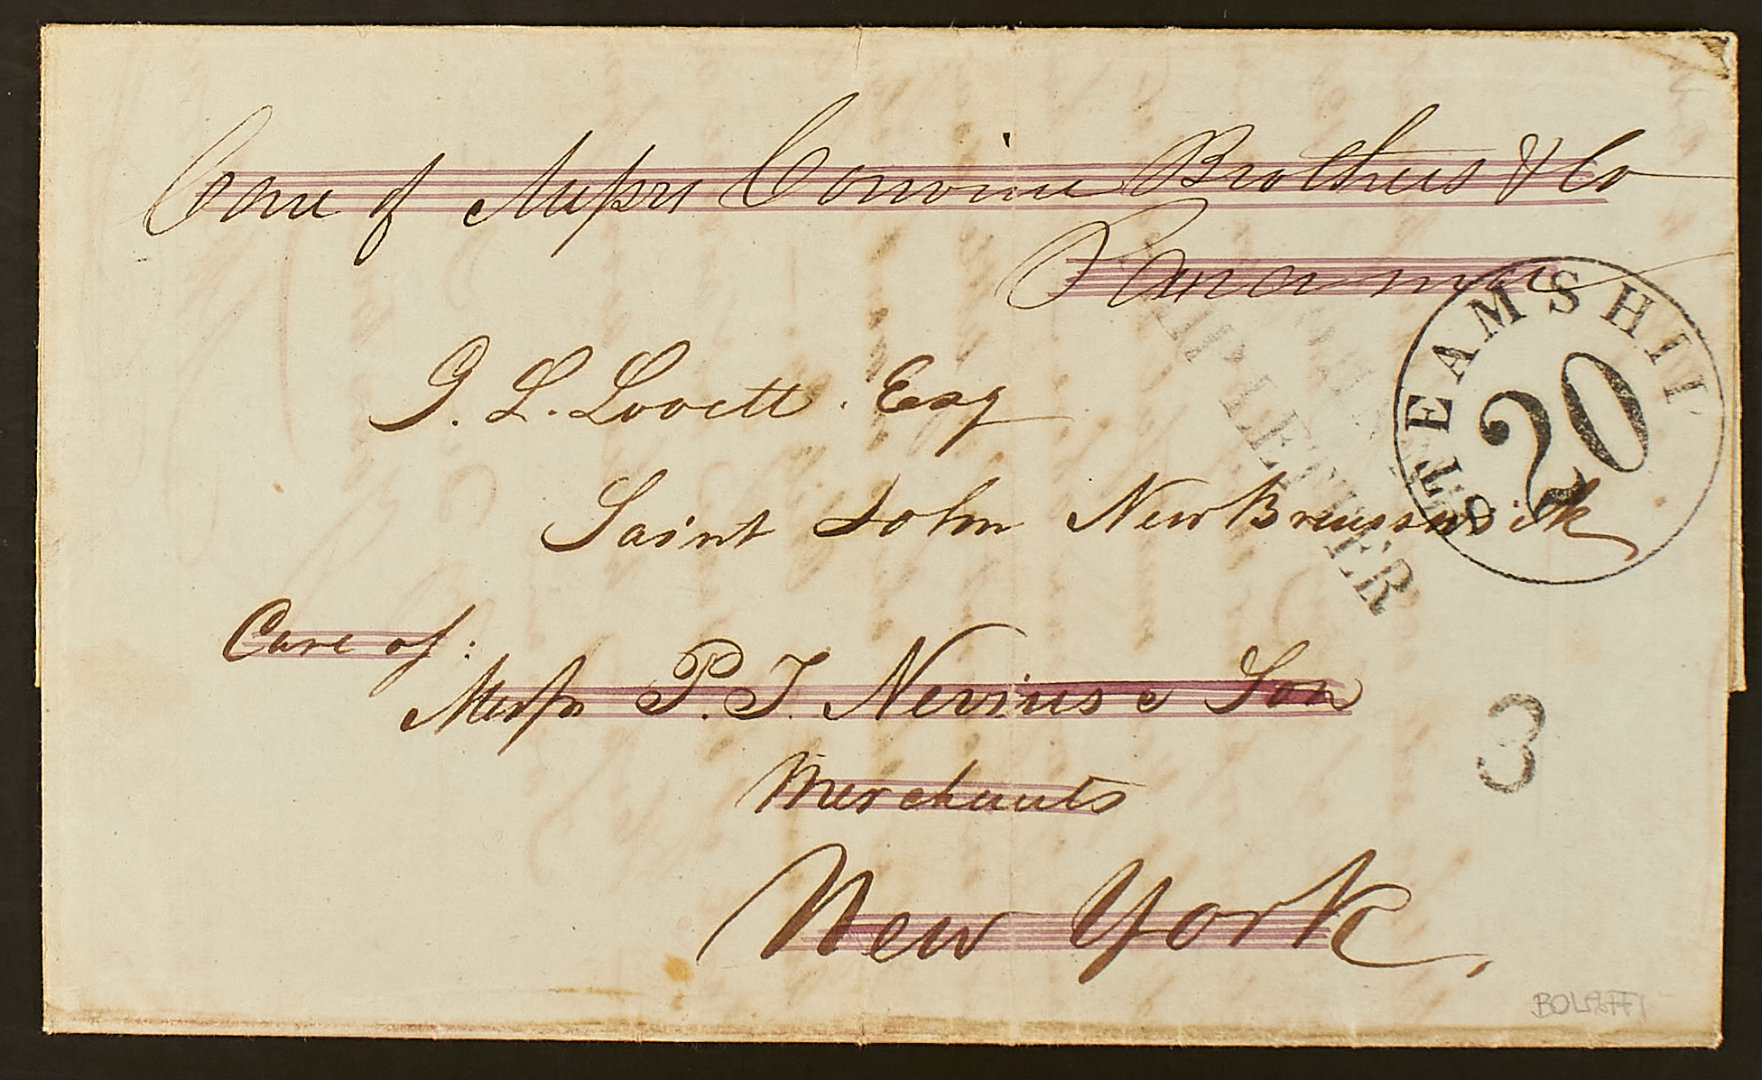 Care of Messrs Corwine Brothers & Co
Panama
STEAMSHIP
20
SHIP LETTER
G. L. Lovett. Esq
Saint John New Brunswick
Care of:
Messrs P. I. Nevius & Son
3
Merchants
New York.
BOLAFFI